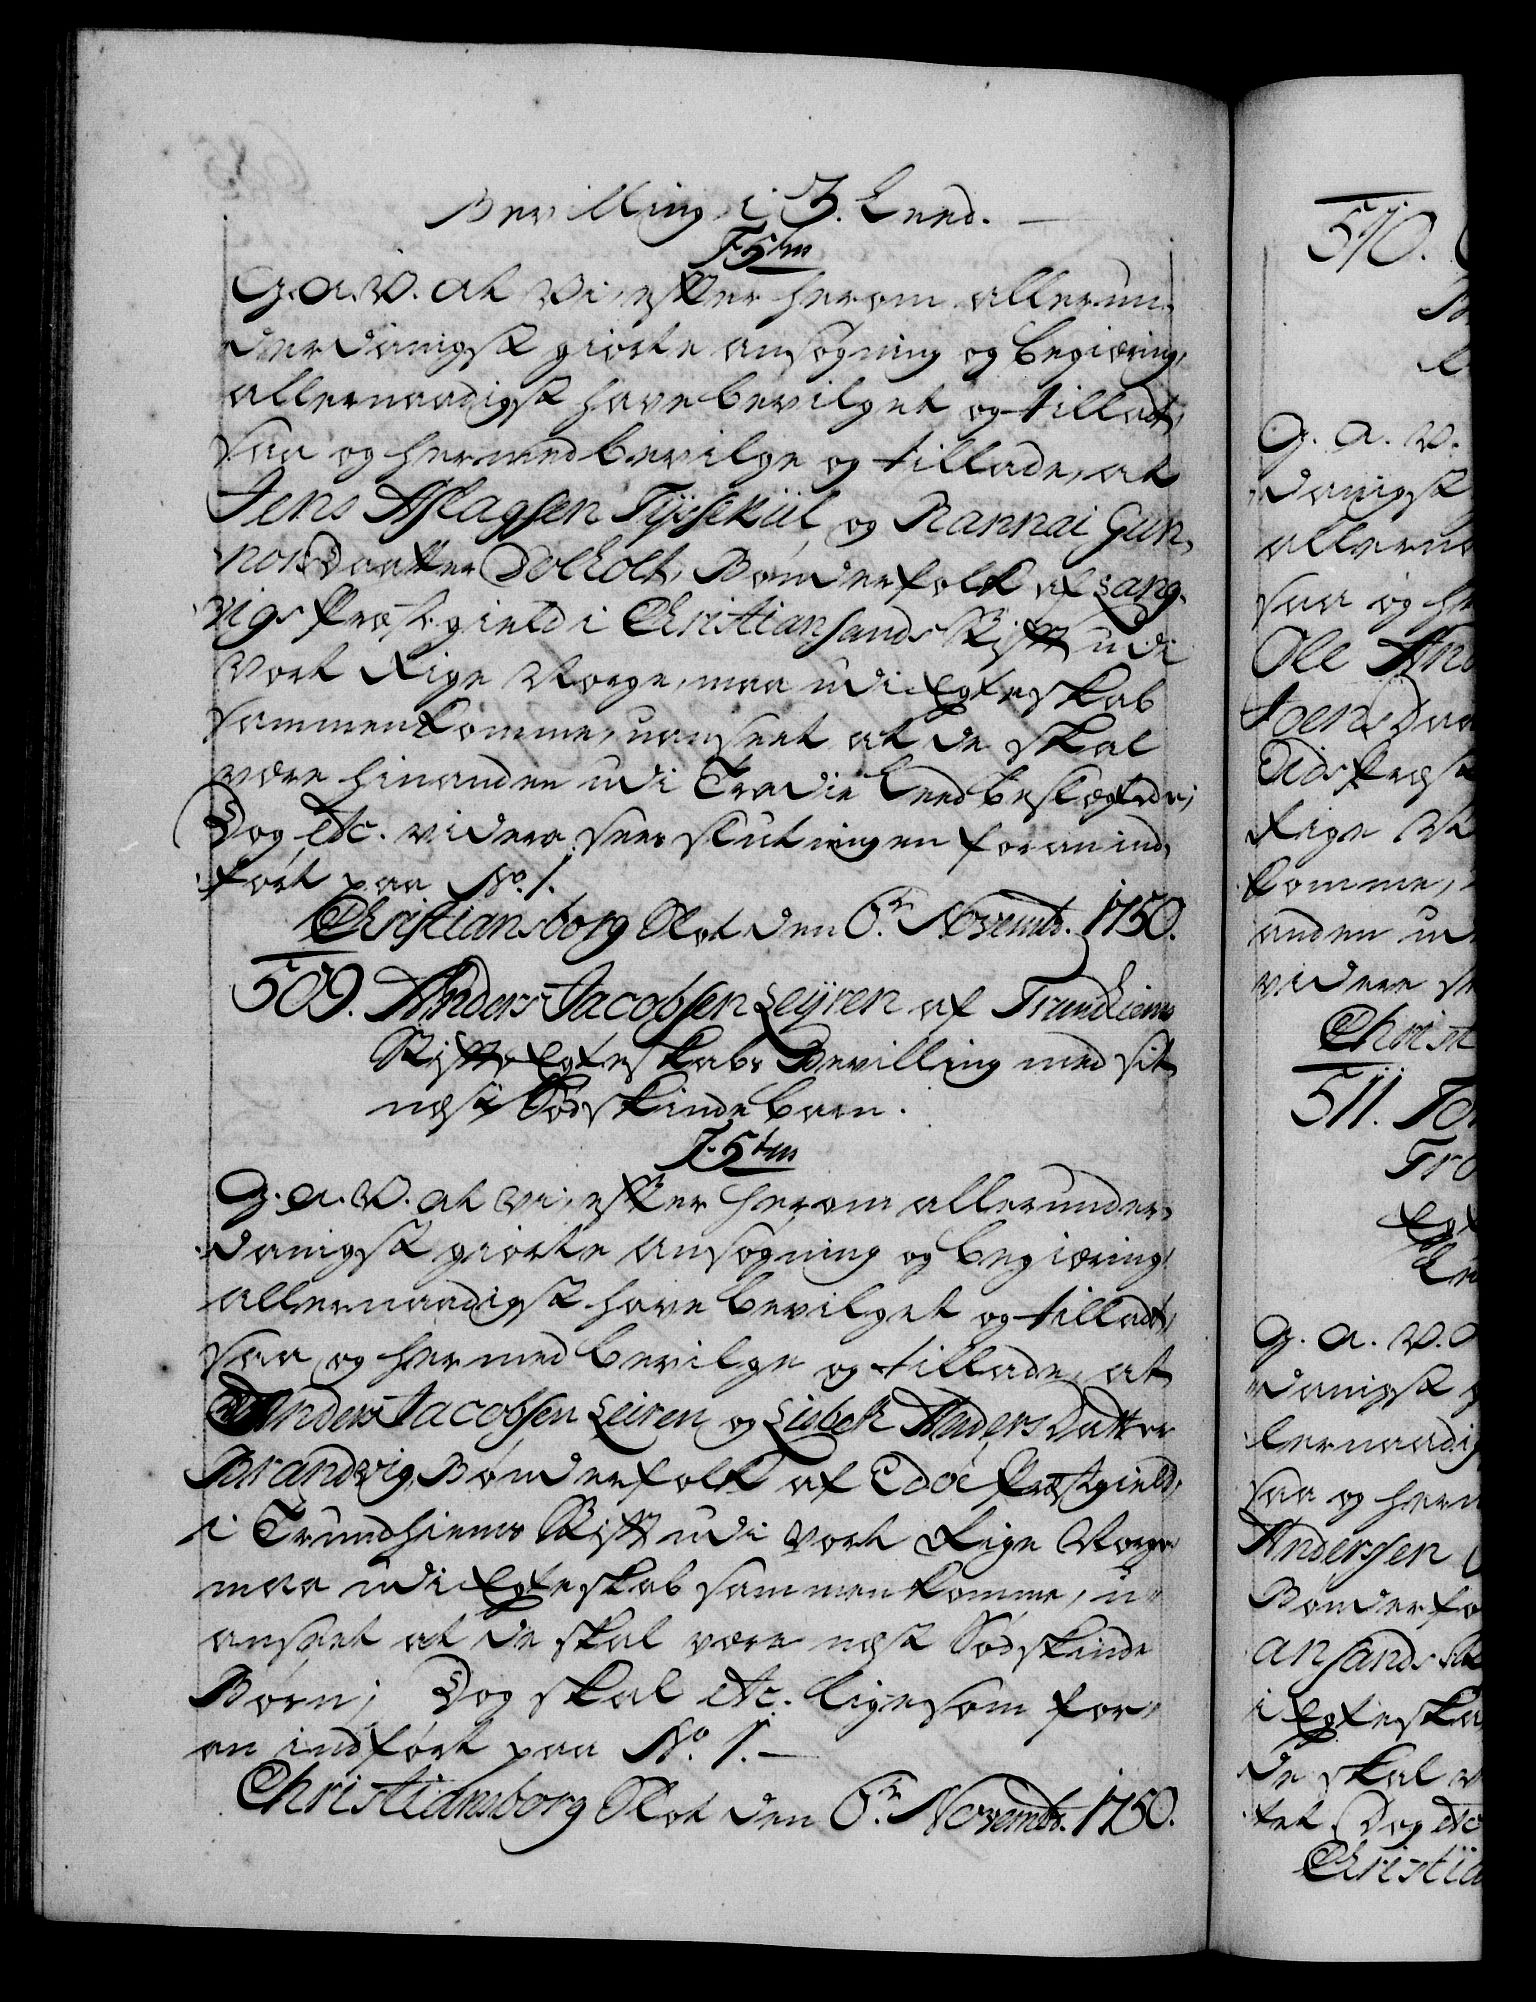 Bevilling i 3. Leed.
F. 5tus
G. A. V. at Vi, efter herom allerun-
derdanigst giorte ansøgning og begiæring,
allernaadigst have bevilget og tilladt,
saa og hermed bevilge og tillade, at
Jens Aslagsen Tysseküil og Rannai Gun-
nors Daatter Dolholt, Bønderfolk af Lang-
vigs Præstegield i Christiansands Stift udi
Vort Rige Norge, maa udi Egteskab
sammenkomme, uanseet at de skal
være hinanden udi Tredie Leed beslægtede;
Dog etc. videre sees slutningen foran ind-
ført paa No. 1.
Christiansborg Slot den 6te Novemb. 1750.
509. Anders Jacobsen Leyren af Trundhiems
Stift Egteskabs Bevilling med sit
næst Sødskindebarn.
F. 5tus
G. A. V. at Vi, efter herom allerunder-
danigst giorte ansøgning og begiæring,
allernaadigst have bevilget og tilladt,
saa og hermed bevilge og tillade, at
Anders Jacobsen Leiren og Lisbeth Anders Datter
Brandvig, Bønderfolk af Edøe Præstegield,
i Trundhiems Stift udi Vort Rige Norge
maa udi Egteskab sammenkomme, u-
anseet at de skal være næst Sødskinde
Børn; Dog skal etc. ligesom for-
an indført paa No. 1.
Christiansborg Slot den 6te Novemb. 1750.
510.
G. A. V.
danigst
allerna
saa og he
Ole And
Joens Daa
Eids Præst
Rige N
komme,
anden ud
videre se
Christ
511.
G. A. V. A
danigst
lernaadig
saa og herm
Anderssen
Bønderfo
ansands St
i Egteska
de skal v
tet. Dog etc
Christia